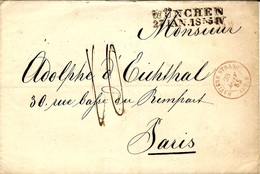 MÜNCHEN
27 JAN. 1845 IV
Monsieur
Adolphe d'Eichthal
30. rue basse du Rempart
Paris